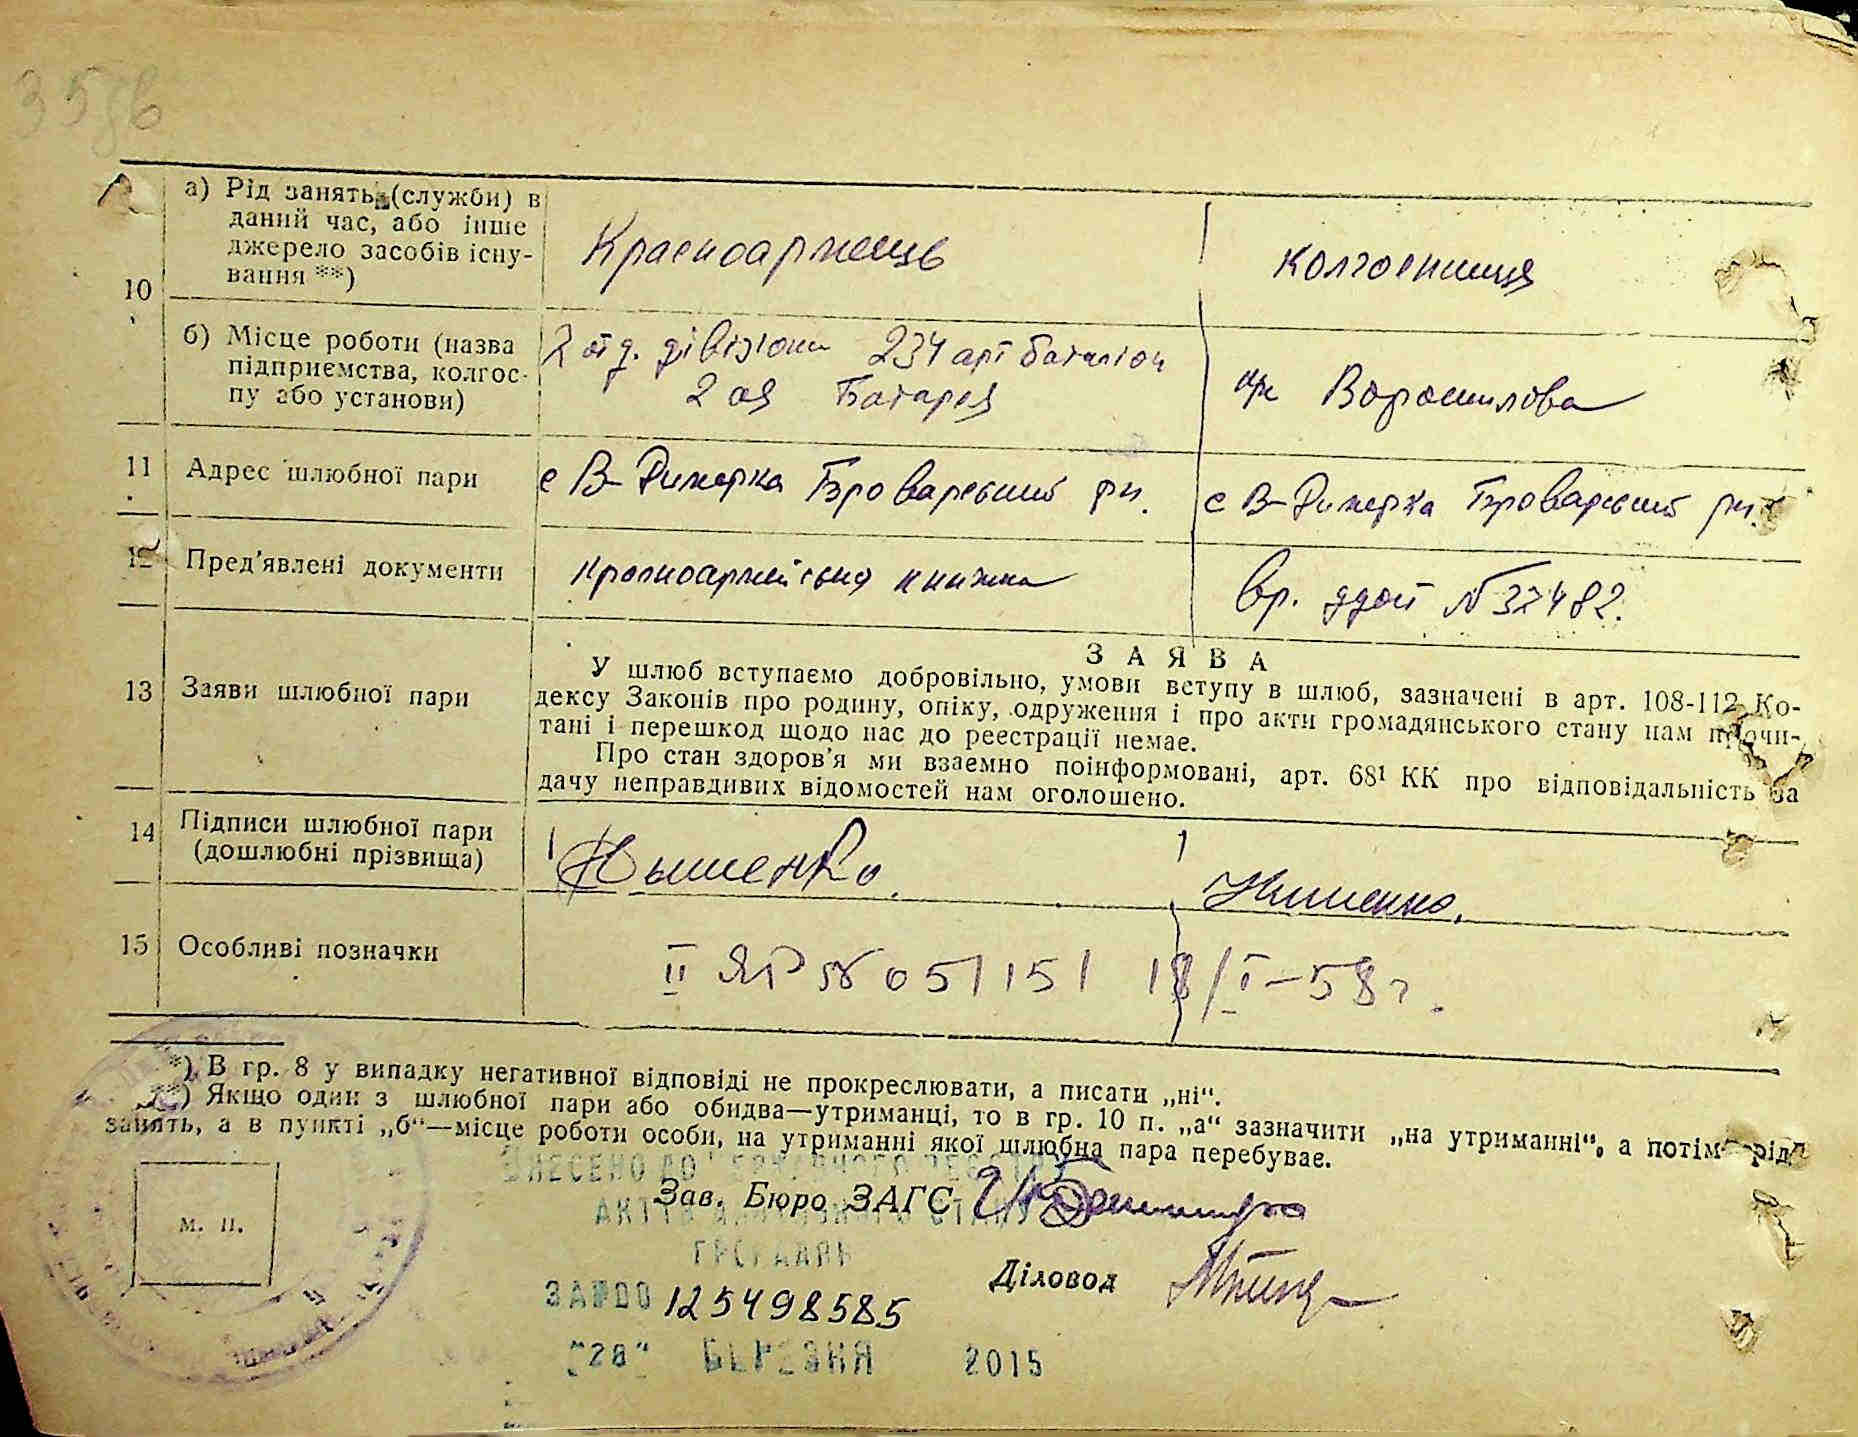 35
а) Рід занять (служби) в
даний час, або інше
джерело засобів існу-
вання **)
Красноармеець
колгоспниця
10
б) Місце роботи (назва
підприємства, колгос-
пу або установи)
2 отд. дівізіона 234 арт баталіон
2 ая Батарея
Ворошилова
11 Адрес шлюбної пари
с В-Димерка Броварський рн.
с В-Димерка Броварський рн.
12 Пред'явлені документи
красноармейська книжка
вр. удост № 32482.
13 Заяви шлюбної пари
ЗАЯВА
У шлюб вступаємо добровільно, умови вступу в шлюб, зазначені в арт. 108-112 Ко-
дексу Законів про родину, опіку, одруження і про акти громадянського стану нам прочи-
тані і перешкод щодо нас до реєстрації немає.
Про стан здоров'я ми взаємно поінформовані, арт. 68¹ КК про відповідальність за
дачу неправдивих відомостей нам оголошено.
14 Підписи шлюбної пари
(дошлюбні прізвища)
15 Особливі позначки
II ЯР № 051151 18/I-58г.
*) В гр. 8 у випадку негативної відповіді не прокреслювати, а писати „ні“.
**) Якщо один з шлюбної пари або обидва—утриманці, то в гр. 10 п. „а“ зазначити „на утриманні“, а потім рід
занять, а в пункті „б“—місце роботи особи, на утриманні якої шлюбна пара перебуває.
ВНЕСЕНО ДО ДЕРЖАВНОГО РЕЄСТРУ
Зав. Бюро ЗАГС
АКТІВ ЦИВІЛЬНОГО СТАНУ
м. п.
ГРОМАДЯН
Діловод
ЗА №00 125498585
"28" БЕРЕЗНЯ 2015